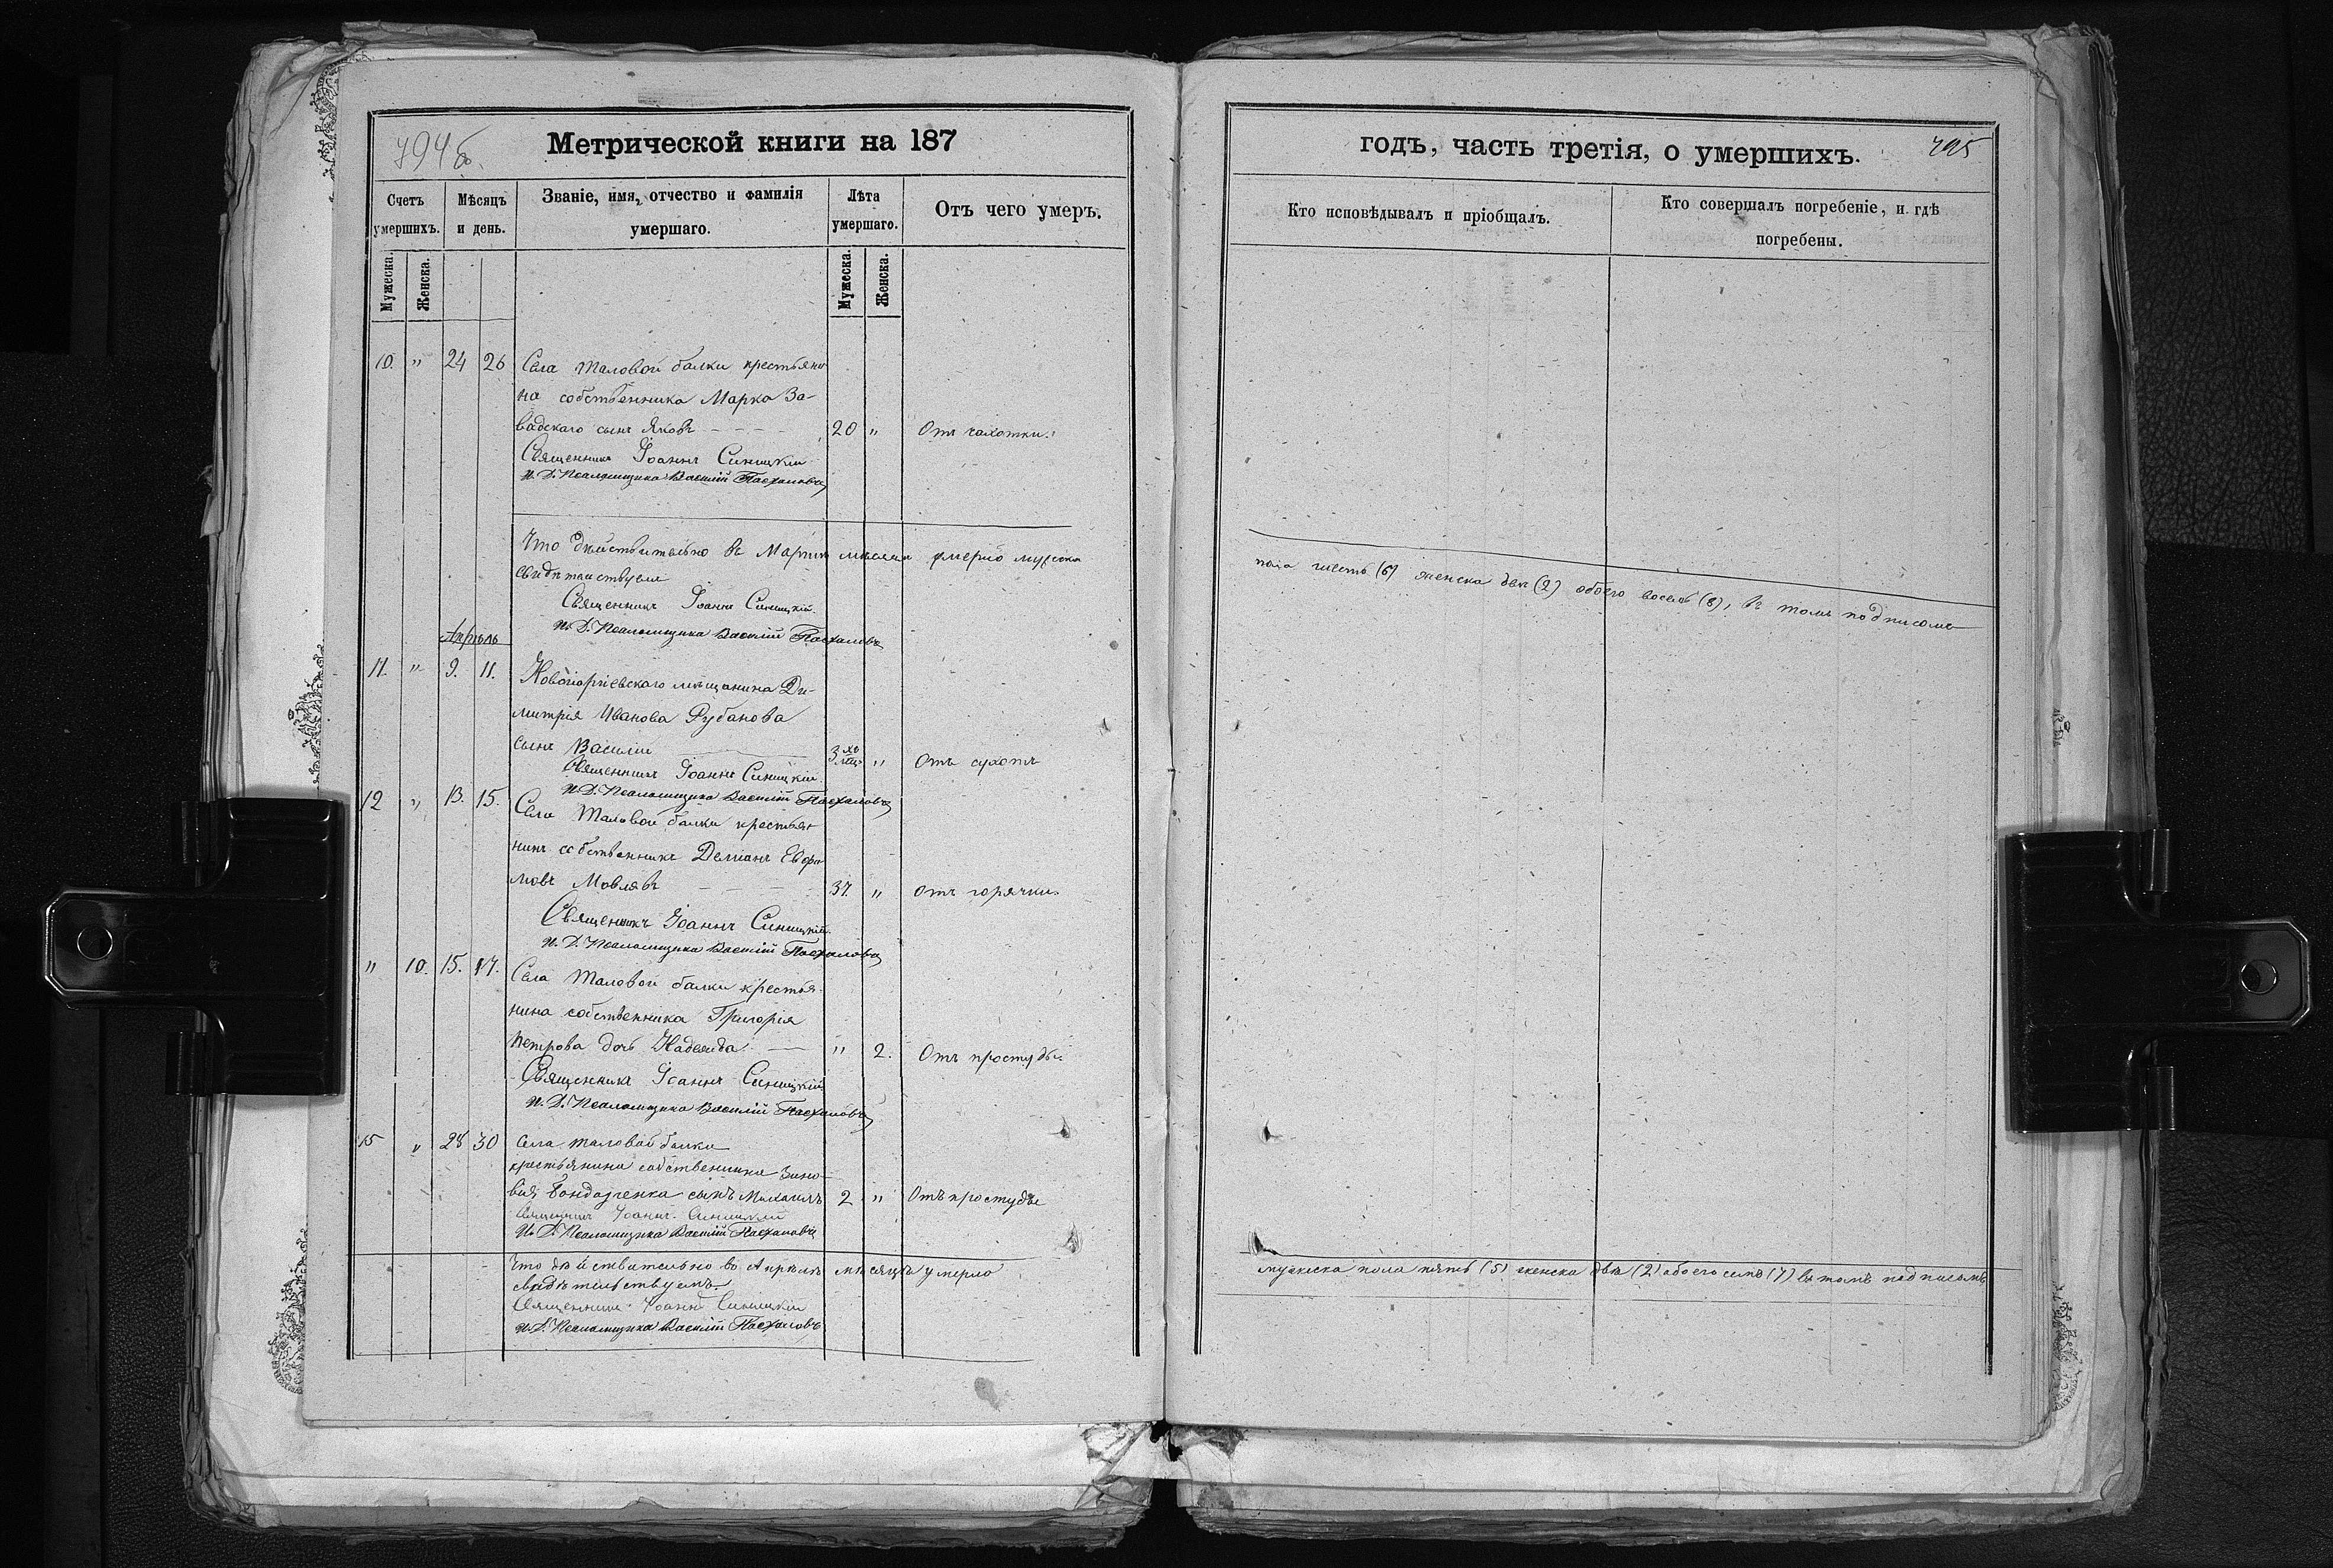 794 б.
Метрической книги на 187
Счетъ умершихъ.
Мѣсяцъ и день.
Званіе, имя, отчество и фамилія умершаго.
Лѣта умершаго.
Отъ чего умеръ.
Мужеска.
Женска.
Мужеска.
Женска.
10. " 24 26 Села Таловой балки крестьяни
на собственника Марка За-
вадскаго сынъ Яковъ 20 " Отъ чахотки.
Священникъ Іоаннъ Синицкій
И. Д. Псаломщика Василій Пасхаловъ
Что дѣйствительно въ Мартѣ мѣсяцѣ умерло мужска
свидѣтельствуемъ
Священникъ Іоаннъ Синицкій.
И. Д. Псаломщика Василій Пасхаловъ
Апрѣль
11. " 9. 11. Новогоргіевскаго мѣщанина Ди-
митрія Иванова Рубанова
сынъ Василій 3 " Отъ сухотъ
Священникъ Іоаннъ Синицкій.
И. Д. Псаломщика Василій Пасхаловъ
12 " 13. 15. Села Таловой балки крестья
нинъ собственникъ Деміанъ
мовъ Мовлявъ 37. " Отъ горячки.
Священникъ Іоаннъ Синицкій.
И. Д. Псаломщика Василій Пасхаловъ
" 10. 15. 17. Села Таловой балки крестья-
нина собственника Григорія
Петрова дочь Надежда " 2. Отъ простуды.
Священникъ Іоаннъ Синицкій
И. Д. Псаломщика Василій Пасхаловъ
15 " 28 30 Села Таловой балки
крестьянина собственника Зино-
вія Бондаренка сынъ Михаилъ 2 " Отъ простуды
Священникъ Іоаннъ Синицкій
И. Д. Псаломщика Василій Пасхаловъ
Что дѣйствительно во Апрѣлѣ мѣсяцѣ умерло
свидѣтельствуемъ
Священникъ Іоаннъ Синицкій
И. Д. Псаломщика Василій Пасхаловъ
годъ, часть третія, о умершихъ.
795
Кто исповѣдывалъ и пріобщалъ.
Кто совершалъ погребеніе, и гдѣ погребены.
пола шесть (6) женска двѣ (2) обоего восемь (8), въ томъ подписомъ
мужеска пола пять (5) женска двѣ (2) обоего семь (7) въ томъ подписомъ